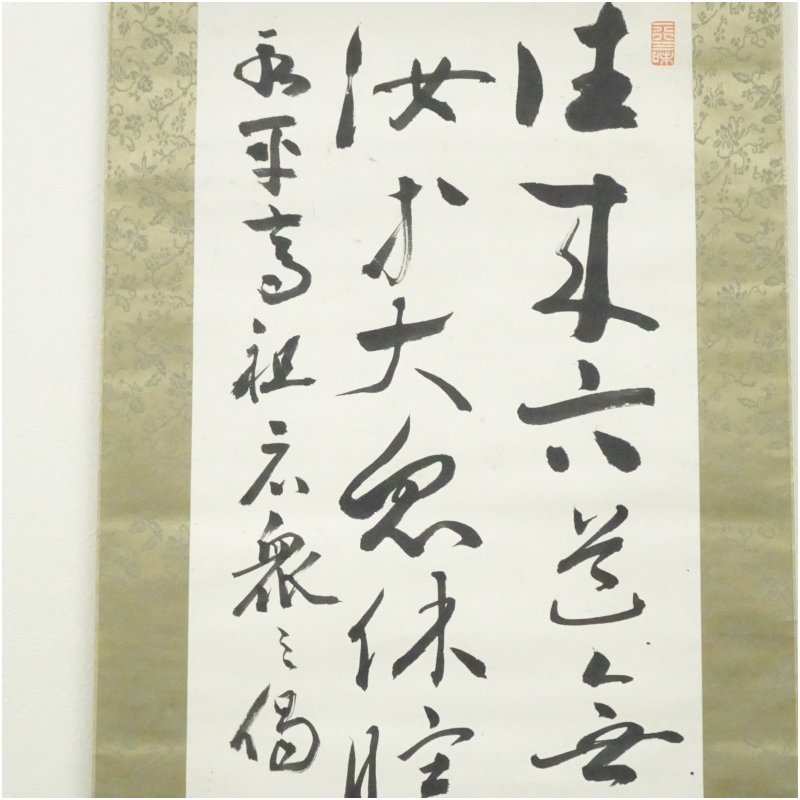 往来六道無
汝等大休
永平高祖示衆之偈